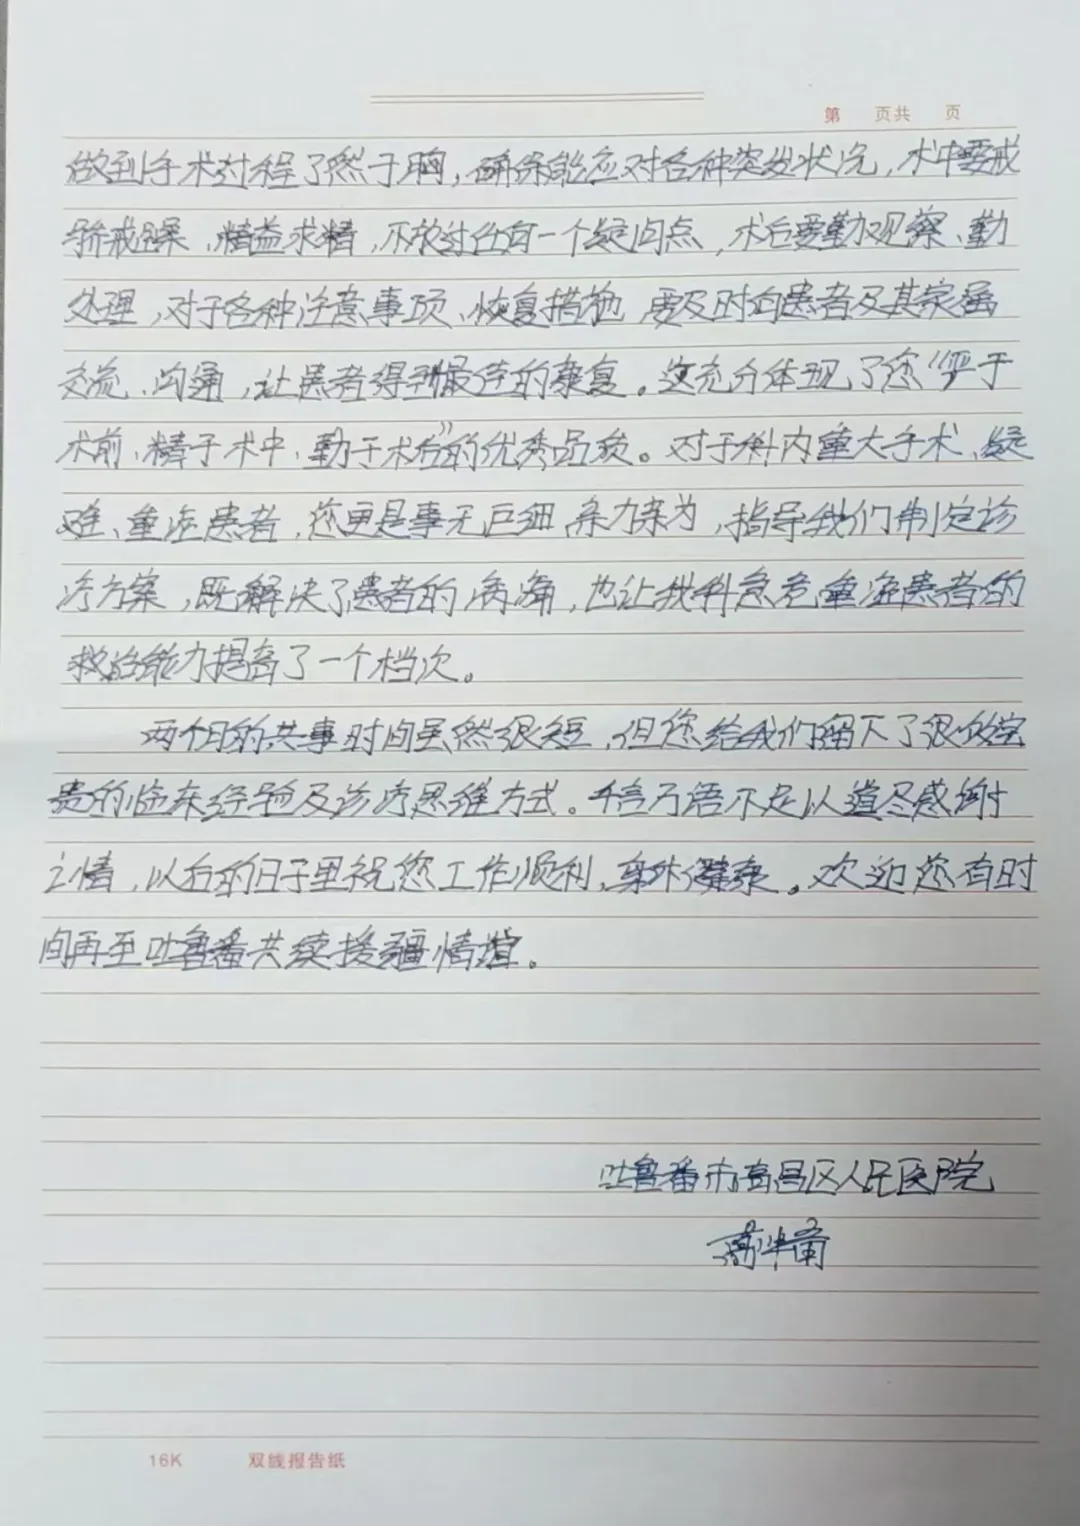 第 页共 页
做到手术过程了然于胸，确保能应对各种突发状况，术中要戒
骄戒躁、精益求精，不放过任何一个疑问点，术后要勤观察、勤
处理，对于各种注意事项、恢复措施，要及时向患者及其家属
交流、沟通，让患者得到最佳的康复。这充分体现了您“严于
术前、精于术中、勤于术后”的优秀品质。对于科内重大手术、疑
难、重症患者，您更是事无巨细、亲力亲为，指导我们制定诊
疗方案，既解决了患者的病痛，也让我科急危重症患者的
救治能力提高了一个档次。
两个月的共事时间虽然很短，但您给我们留下了很多宝
贵的临床经验及诊疗思维方式。千言万语不足以道尽感谢
之情，以后的日子里祝您工作顺利，身体健康。欢迎您有时
间再至吐鲁番共续援疆情谊。
吐鲁番市高昌区人民医院
16K 双线报告纸